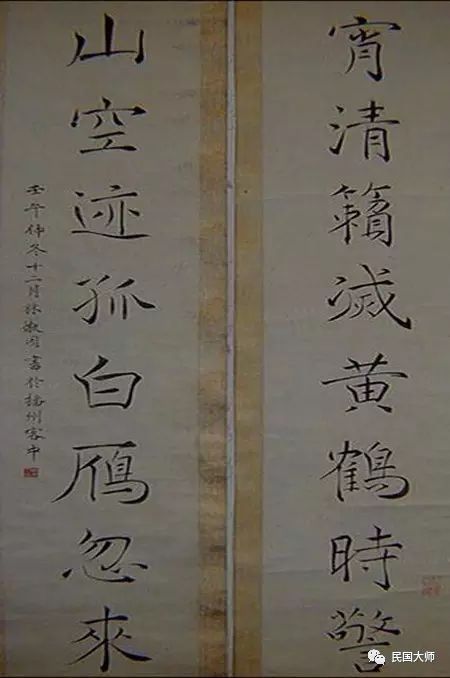 宵清籟滅黄鶴時警
山空迹孤白鴈忽來
壬午仲冬十二月書於揚州客中
民国大师